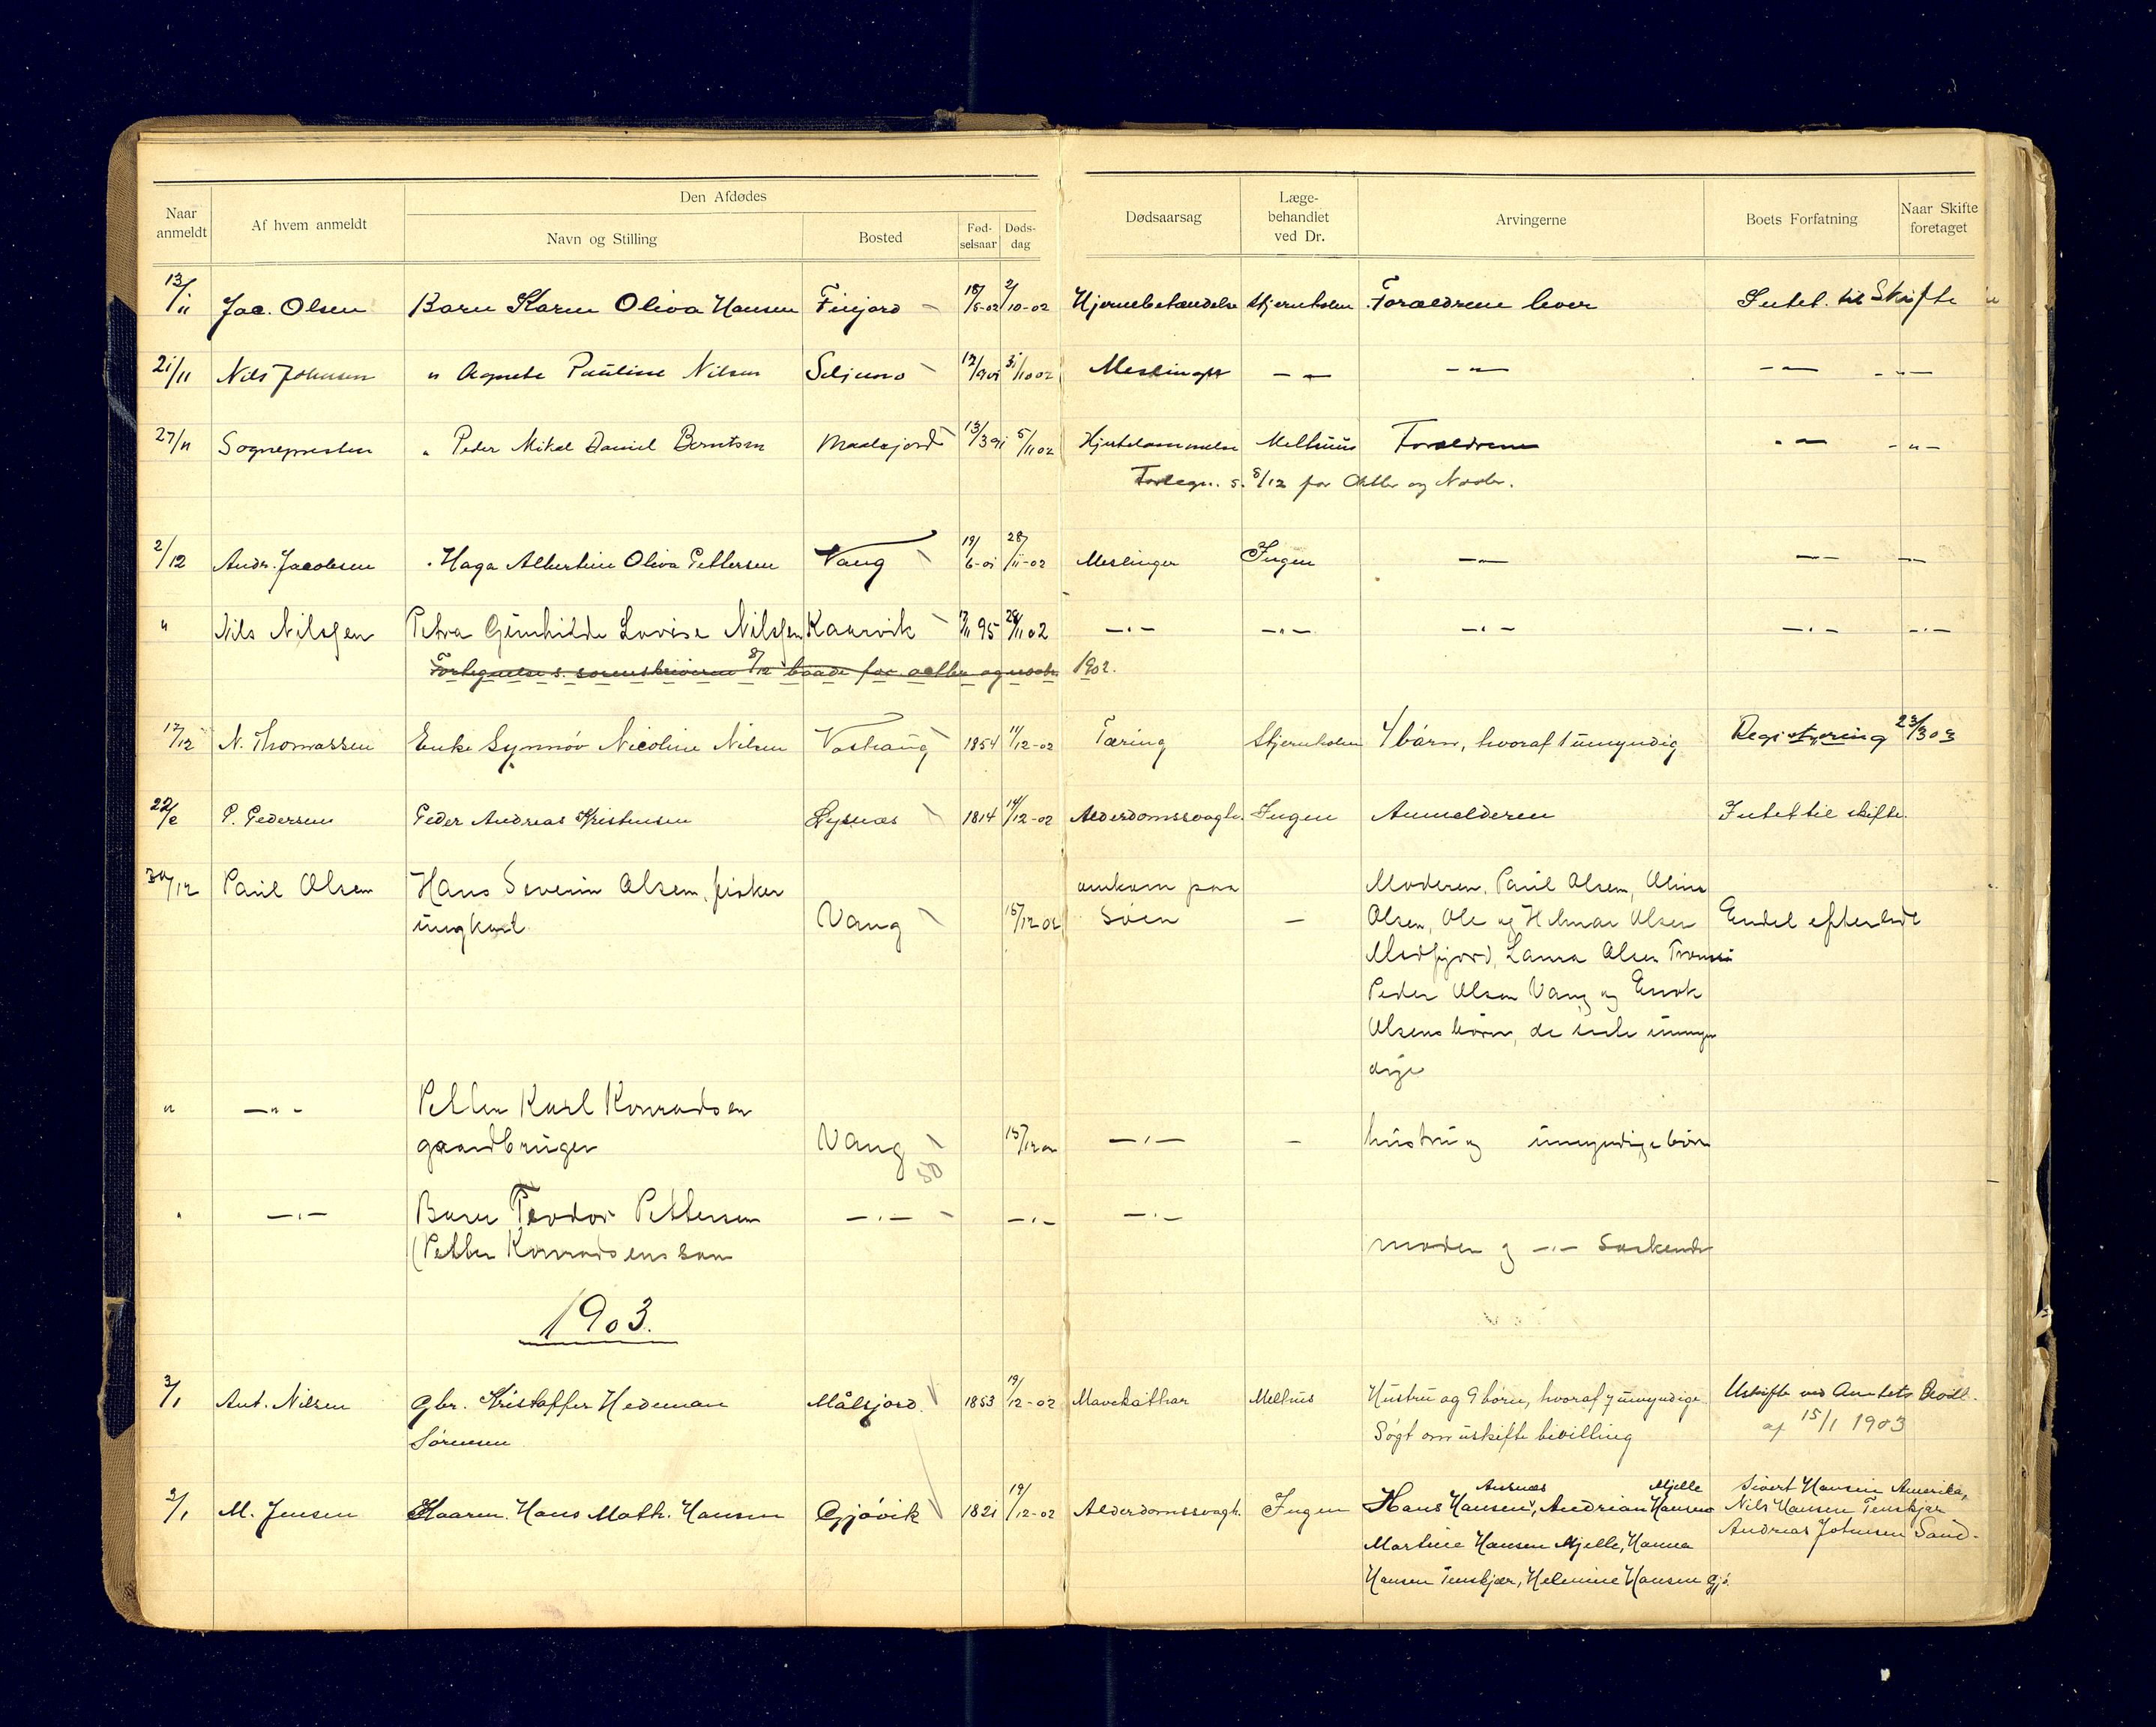 Naar anmeldt
Af hvem anmeldt
Den Afdødes
Navn og Stilling
Bosted
Fød-selsaar
Døds-dag
Dødsaarsag
Læge-behandlet ved Dr.
Arvingerne
Boets Forfatning
Naar Skifte foretaget
13/11 Jac. Olsen Barn Karen Oliva Hansen Finjord 18/5-02 2/10-02 Hjernebetændelse Stjernholm Forældrene lever Intet til Skifte
21/11 Nils Johnsen " Agnete Pauline Nilsen 12/9 01 31/10 02 Meslinger — " — — " — — " — — " —
27/11 Sognepresten " Peder Mikal Daniel Berntsen Maalsjord 13/3 91 5/11 02 Hjertelammelse Melhuus Forældrene — " — — " —
Fortegn. s. 8/12 for Okbr og Novbr.
2/12 Andr. Jacobsen " Haga Albertine Oliva Pettersen Vang 19/6-01 28/11-02 Meslinger Ingen — " — — " — — " —
" Nils Nilssen Petra Gunhilde Lovise Nilssen Kaarvik 95 28/11 02 — " — — " — — " — — " — — " —
Fortegnelse s. sorenskriveren 8/12 baade for octbr og novbr. 1902.
17/12 N. Thomassen Enke Synnøv Nicoline Nilsen 1854 11/12-02 Tæring Stjernholm 4 børn, hvoraf 1 umyndig Registrering 23/3 03
22/12 P. Pedersen Peder Andreas Kristensen Lysnæs 1814 14/12-02 Alderdomssvagh. Ingen Anmelderen Intet til skifte.
30/12 Paul Olsen Hans Severin Olsen, fisker omkom paa Moderen, Paul Olsen, Oline
ungkarl Vang 15/12 02 Søen — Olsen, Ole og Hilmar Olsen Endel efterladt
Medfjord, Laura Olsen Tromsø
Peder Olsen Vang og Enok
Olsens børn, de siste umyn
dige
" — " — Petter Karl Konradsen
gaardbruger Vang 15/12 02 — " — — hustru og umyndige børn
" — " — Barn Teodor Pettersen — " — — " — — " —
(Petter Konradsens søn moder og — " — søskende
1903.
3/1 Ant. Nilsen Gbr. Kristoffer Hedeman Målsjord 1853 19/12-02 Mavekathar Melhus Hustru og 9 børn, hvoraf 7 umyndige Uskifte ved Amtets Bevill.
Sørensen Søgt om uskifte bevilling af 15/1 1903
Ausnæs Mjelle Sivert Hansen Amerika,
2/1 M. Jensen Kaarm. Hans Math. Hansen Gjøvik 1821 19/12-02 Alderdomssvagh. Ingen Hans Hansen, Andrian Hansen Nils Hansen Tenskjær
Andreas Johnsen Sand-
Martine Hansen Mjelle, Hanna
Hansen Tenskjær, Helmine Hansen Gjø.